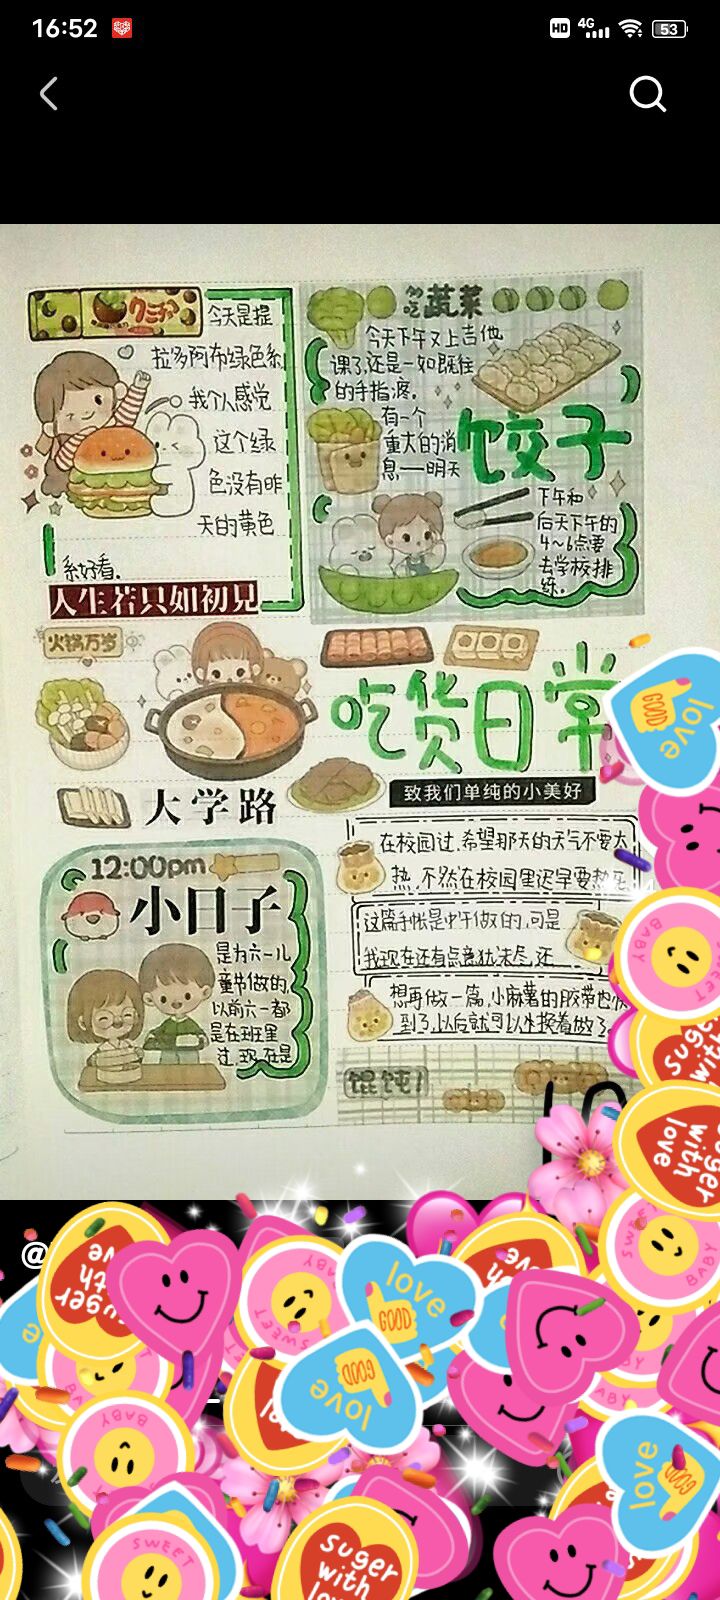 16:52
HD
4G
53
今天是提
拉多阿布绿色系
我个人感觉
这个绿
色没有昨
天的黄色
系好看.
人生若只如初见
多吃蔬菜
今天下午又上吉他
课了,还是一如既往
的手指疼.
有一个
重大的消
息——明天
饺子
下午和
后天下午的
4~6点要
去学校排
练.
火锅万岁
吃货日常
致我们单纯的小美好
大学路
12:00pm
小日子
是为六一儿
童节做的,
以前六一都
是在班里
过,现在是
在校园过,希望那天的天气不要太
热,不然在校园里迟早要热死
这篇手帐是中午做的,可是
我现在还有点意犹未尽,还
想再做一篇,小麻薯的胶带也快
到了,以后就可以生换着做了
馄饨!
10
@
love
GOOD
BABY
suger
with
love
suger
with
love
SWEET
BABY
suger
with
love
SWEET
love
GOOD
love
GOOD
BABY
love
GOOD
SWEET
suger
with
love